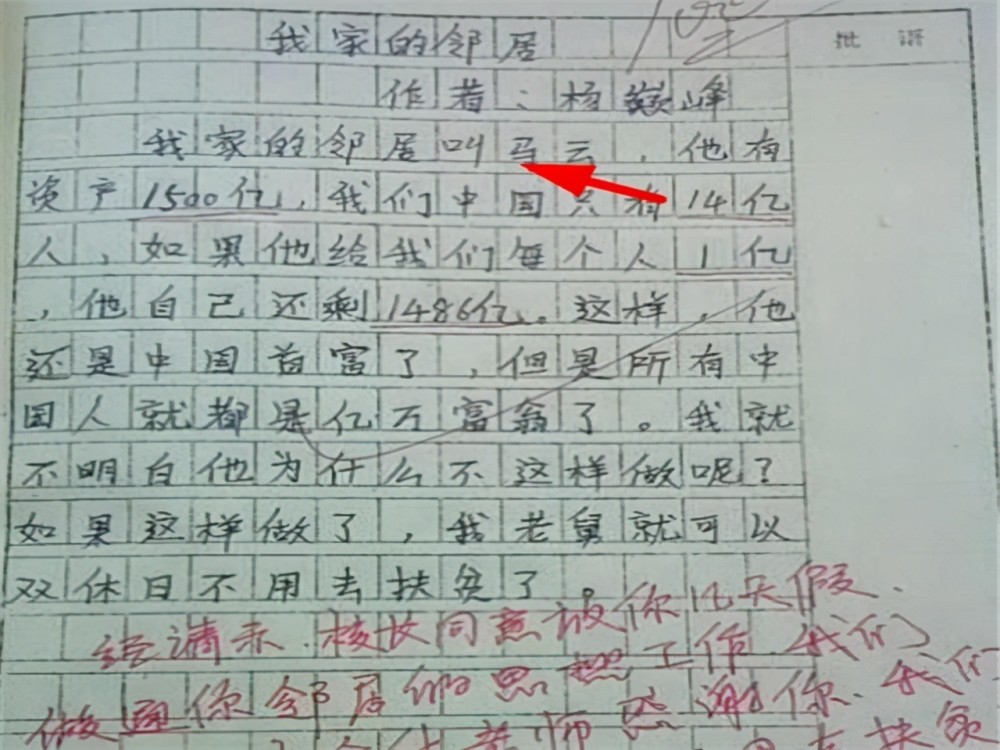 批 语
我家的邻居
作者:杨巅峰
我家的邻居叫马云,他有
资产1500亿,我们中国只有14亿
人,如果他给我们每个人1亿
,他自己还剩1486亿。这样,他
还是中国首富了,但是所有中
国人就都是亿万富翁了。我就
不明白他为什么不这样做呢?
如果这样做了,我老舅就可以
双休日不用去扶贫了。
经请示,校长同意放你几天假.
做通你邻居的思想工作.我们
老师感谢你.我们
扶贫